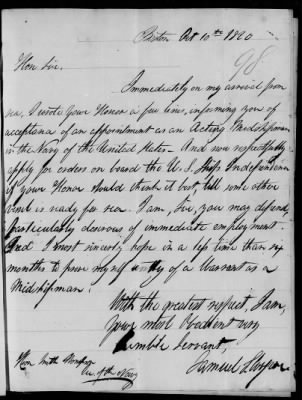 Boston Oct 10th 1820
98
Hon Sir,
Immediately on my arrival from
sea, I wrote Your Honor a few lines, informing you of
acceptance of an appointment as an Acting Midshipman
in the Navy of the United States. And now respectfully
apply for orders on board the U. S. Ship Independence
if your Honor should think it best, till some other
vessel is ready for sea. I am, Sir, you may depend,
particularly desirous of immediate employment.
And I most sincerely hope in a less time than six
months to prove myself worthy of a Warrant as a
Midshipman.
With the greatest respect, I am,
Your most Obedient very
humble Servant,
Samuel
Hon Smith Thompson
Sec. of the Navy